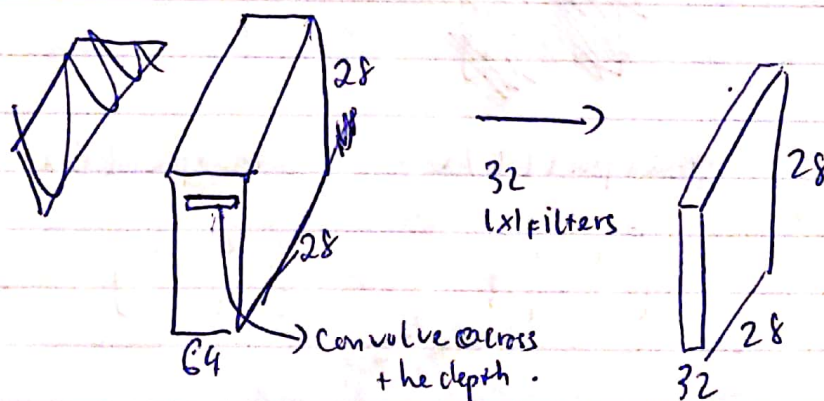 28
28
64
convolve across
the depth.
32
1x1 filters
28
28
32